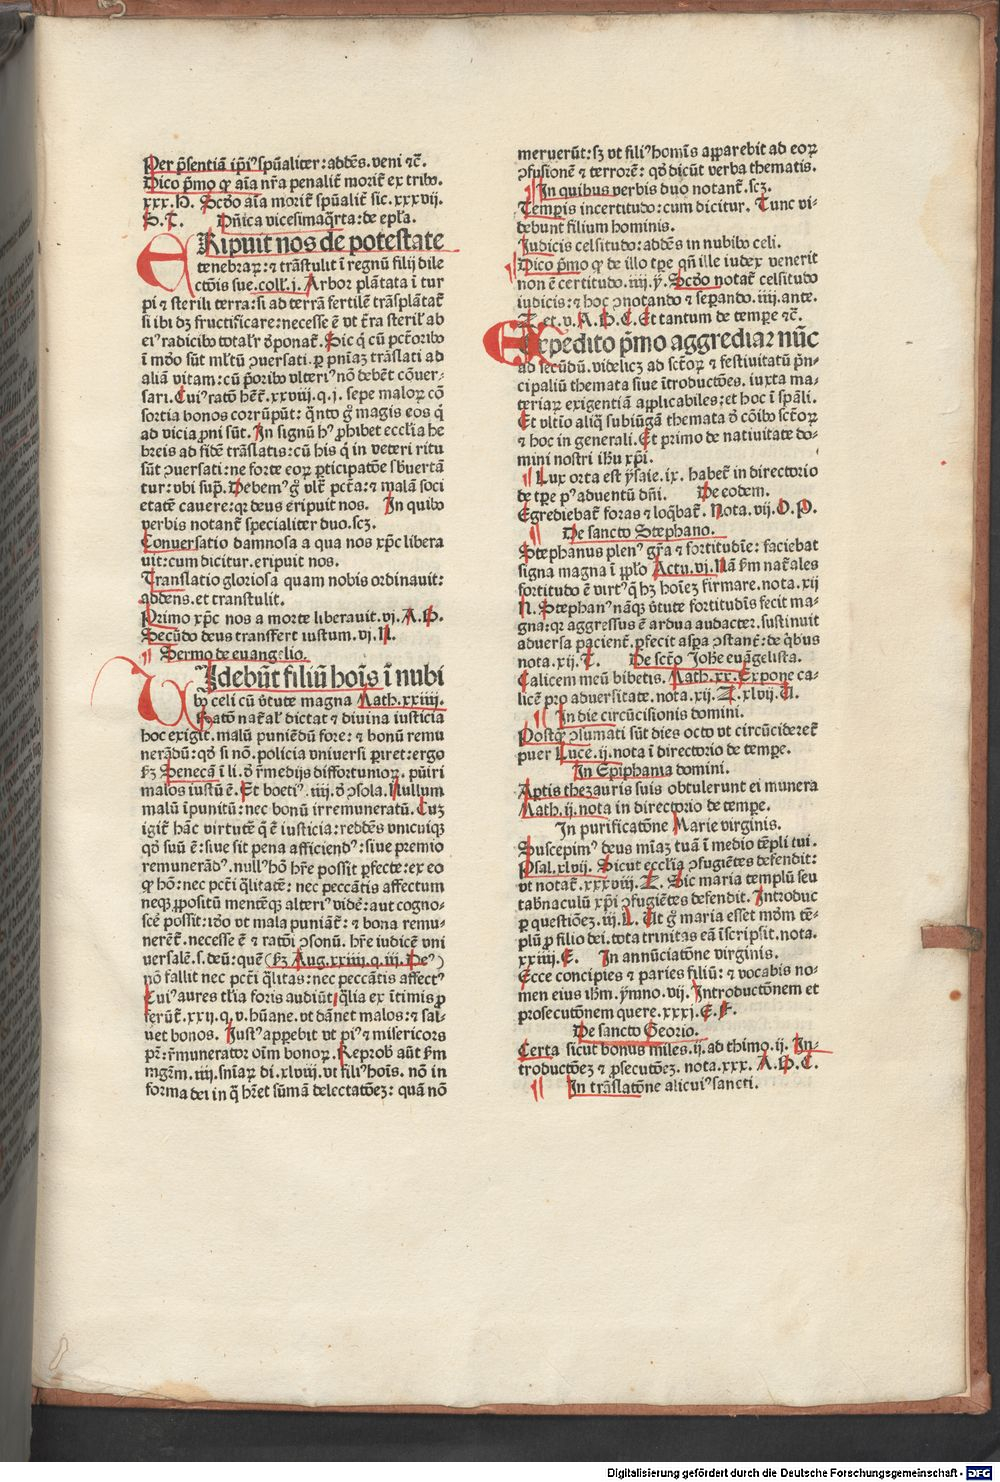 Per p̄sentiā ip̄iꝰ spūaliter: addēs. veni ⁊c̄.
Dico p̄mo ꝙ aīa nr̄a penalit̄ morit̄ ex tribꝰ.
xxx. H. Scd̓o aīa morit̄ spūalit̄ sic. xxxvij.
B. T. Dn̄ica vicesimaq̄rta: de epl̄a.
ERipuit nos de potestate
tenebraꝝ: ⁊ trāstulit ī regnū filij dile
ctōis sue. coll̓. j. Arbor plātata ī tur
pi ⁊ sterili terra: si ad terrā fertilē trāsplātat̄
si ibi dꝫ fructificare: necesse ē vt t̄ra steril̓ ab
eiꝰ radicibꝰ totalr̄ d̓ponat̄. Sic q̄ cū pct̄oribꝰ
ī mōo sūt ml̄tū ↄuersati. ꝑ pn̄iaꝫ trāslati ad
aliā vitam: cū p̄oribꝰ vlteriꝰ nō debēt cōuer-
sari. Cuiꝰ ratō hēt̄. xxviij. q. j. sepe maloꝝ cō
sortia bonos corrūpūt: q̄nto g̓ magis eos q̄
ad vicia ꝓni sūt. In signū hꝰ ꝓhibet eccl̄ia he
breis ad fidē trāslatis: cū his q̄ in veteri ritu
sūt ↄuersati: ne forte eoꝝ ꝑticipatōe sb̓uertā
tur: vbi sup̄. Debemꝰ g̓ vlt̄ pct̄a: ⁊ malā soci
etatē cauere: qꝛ deus eripuit nos. In quibꝰ
verbis notant̄ specialiter duo. scꝫ.
Conuersatio damnosa a qua nos xp̄c libera
uit: cum dicitur. eripuit nos.
Translatio gloriosa quam nobis ordinauit:
addens. et transtulit.
Primo xp̄c nos a morte liberauit. vj. A. B.
Secūdo deus transfert iustum. vj. N.
¶ Sermo de euangelio.
VIdebūt filiū hoīs ī nubi
bꝰ celi cū v̓tute magna Math. xxiiij.
Ratō nat̄al̓ dictat ⁊ diuina iusticia
hoc exigit. malū puniēdū fore: ⁊ bonū remu
nerādū: qd̓ si nō. policia vniuersi ꝑiret: ergo
ẜꝫ Senecā ī li. d̓ r̄medijs diffortumoꝝ. pūiri
malos iustū ē. Et boetiꝰ. iiij. d̓ ↄsola. Nullum
malū īpunitū: nec bonū irremuneratū. Cuꝫ
igit̄ hāc virtutē q̄ ē iusticia: reddēs vnicuiqꝫ
qd̓ suū ē: siue sit pena afficiendꝰ: siue premio
remunerādꝰ. nullꝰ hō hr̄e possit ꝑfecte: ex eo
ꝙ hō: nec pct̄i q̄litatē: nec peccātis affectum
neqꝫ ꝓpositū mentēqꝫ alteriꝰ vidē: aut cogno-
scē possit: iō vt mala puniāt̄: ⁊ bona remu-
nerēt̄. necesse ē ⁊ ratōi ↄsonū. hr̄e iudicē vni
uersalē. s. deū: quē (ẜꝫ Aug. xxiiij. q. iij. Deꝰ)
nō fallit nec pct̄i q̄litas: nec peccātis affectꝰ
Cuiꝰ aures tl̄ia foris audiūt q̄lia ex ītimis ꝓ
ferūt̄. xxij. q. v. hūane. vt dānet malos: ⁊ sal-
uet bonos. Iustꝰ apꝑebit vt piꝰ ⁊ misericors
pr̄: r̄munerator oīm bonoꝝ. Reprob̓ aūt ẜm
mgr̄m. iiij. sn̄iaꝝ di. xlviij. vt filiꝰ hoīs. nō in
forma dei in q̄ hr̄et sūmā delectatōeꝫ: quā nō
meruerūt: sꝫ vt filiꝰ homīs apparebit ad eoꝝ
ↄfusionē ⁊ terrorē: qd̓ dicūt verba thematis.
¶ In quibus verbis duo notant̄. scꝫ.
Tempis incertitudo: cum dicitur. Tunc vi-
debunt filium hominis.
Iudicis celsitudo: addēs in nubibꝰ celi.
¶ Dico p̄mo ꝙ de illo tꝑe qn̄ ille iudex venerit
non ē certitudo. iiij. ẏ. Scd̓o notat̄ celsitudo
iudicis: ⁊ hoc ↄnotando ⁊ seꝑando. iiij. ante.
Z. et. v. A. B. C. Et tantum de tempꝑe ⁊c̄.
EXpedito p̄mo aggrediar nūc
ad secūdū. videlicꝫ ad sct̄oꝝ ⁊ festiuitatū p̄n-
cipaliū themata siue ītroductōes. iuxta ma-
teriaꝝ exigentiā applicabiles: et hoc ī spāli.
Et vltīo aliq̄ subiūgā themata d̓ cōibꝰ sct̄oꝝ
⁊ hoc in generali. Et primo de natiuitate do-
mini nostri ih̄u xp̄i.
¶ Lux orta est ysaie. ix. habet̄ in directorio
de tꝑe pꝰ aduentū dn̄i. De eodem.
Egrediebat̄ foras ⁊ loq̄bat̄. Nota. vij. O. P.
¶ De sancto Stephano.
Stephanus plenꝰ gr̄a ⁊ fortitudīe: faciebat
signa magna ī ꝓplo Actu. vj. Nā ẜm nat̄ales
fortitudo ē virtꝰ q̄ hꝫ hoīeꝫ firmare. nota. xij
N. Stephanꝰ nāqꝫ v̓tute fortitudīs fecit ma-
gna: qꝛ aggressus ē ardua audacter. sustinuit
aduersa pacient̄. ꝑfecit aspa ↄstant̄: de q̄bus
nota. xij. T. De sct̄o Joh̄e euāgelista.
Calicem meū bibetis. Math. xx. Expone ca-
licē pro aduersitate. nota. xij. Z. xlvij. U.
¶ In die circūcisionis domini.
Postqꝫ ↄlumati sūt dies octo vt circūcideret̄
puer Luce. ij. nota ī directorio de tempe.
In Epiphania domini.
Aptis thezauris suis obtulerunt ei munera
Math. ij. nota in directorio de tempe.
In purificatōne Marie virginis.
Suscepimꝰ deus mīaꝫ tuā ī medio tēpli tui.
Psal. xlvij. Sicut eccl̄ia ↄfugiētes defendit:
vt notat̄. xxxviij. Z. Sic maria templū seu
tabnaculū xp̄i ↄfugiētes defendit. Introduc
ꝑ questiōeꝫ. iij. L. Ut g̓ maria esset mōm tē-
plū ꝓ filio dei. tota trinitas eā īscripsit. nota.
xxiiij. E. In annūciatōne virginis.
Ecce concipies ⁊ paries filiū: ⁊ vocabis no-
men eius ih̄m. ymno. vij. Introductōnem et
prosecutōnem quere. xxxj. E. F.
De sancto Georio.
Certa sicut bonus miles. ij. ad thimo. ij. In-
troductōeꝫ ⁊ ꝓsecutōeꝫ. nota. xxx. A. B. C.
¶ In trāslatōne alicuiꝰ sancti.
Digitalisierung gefördert durch die Deutsche Forschungsgemeinschaft - DFG